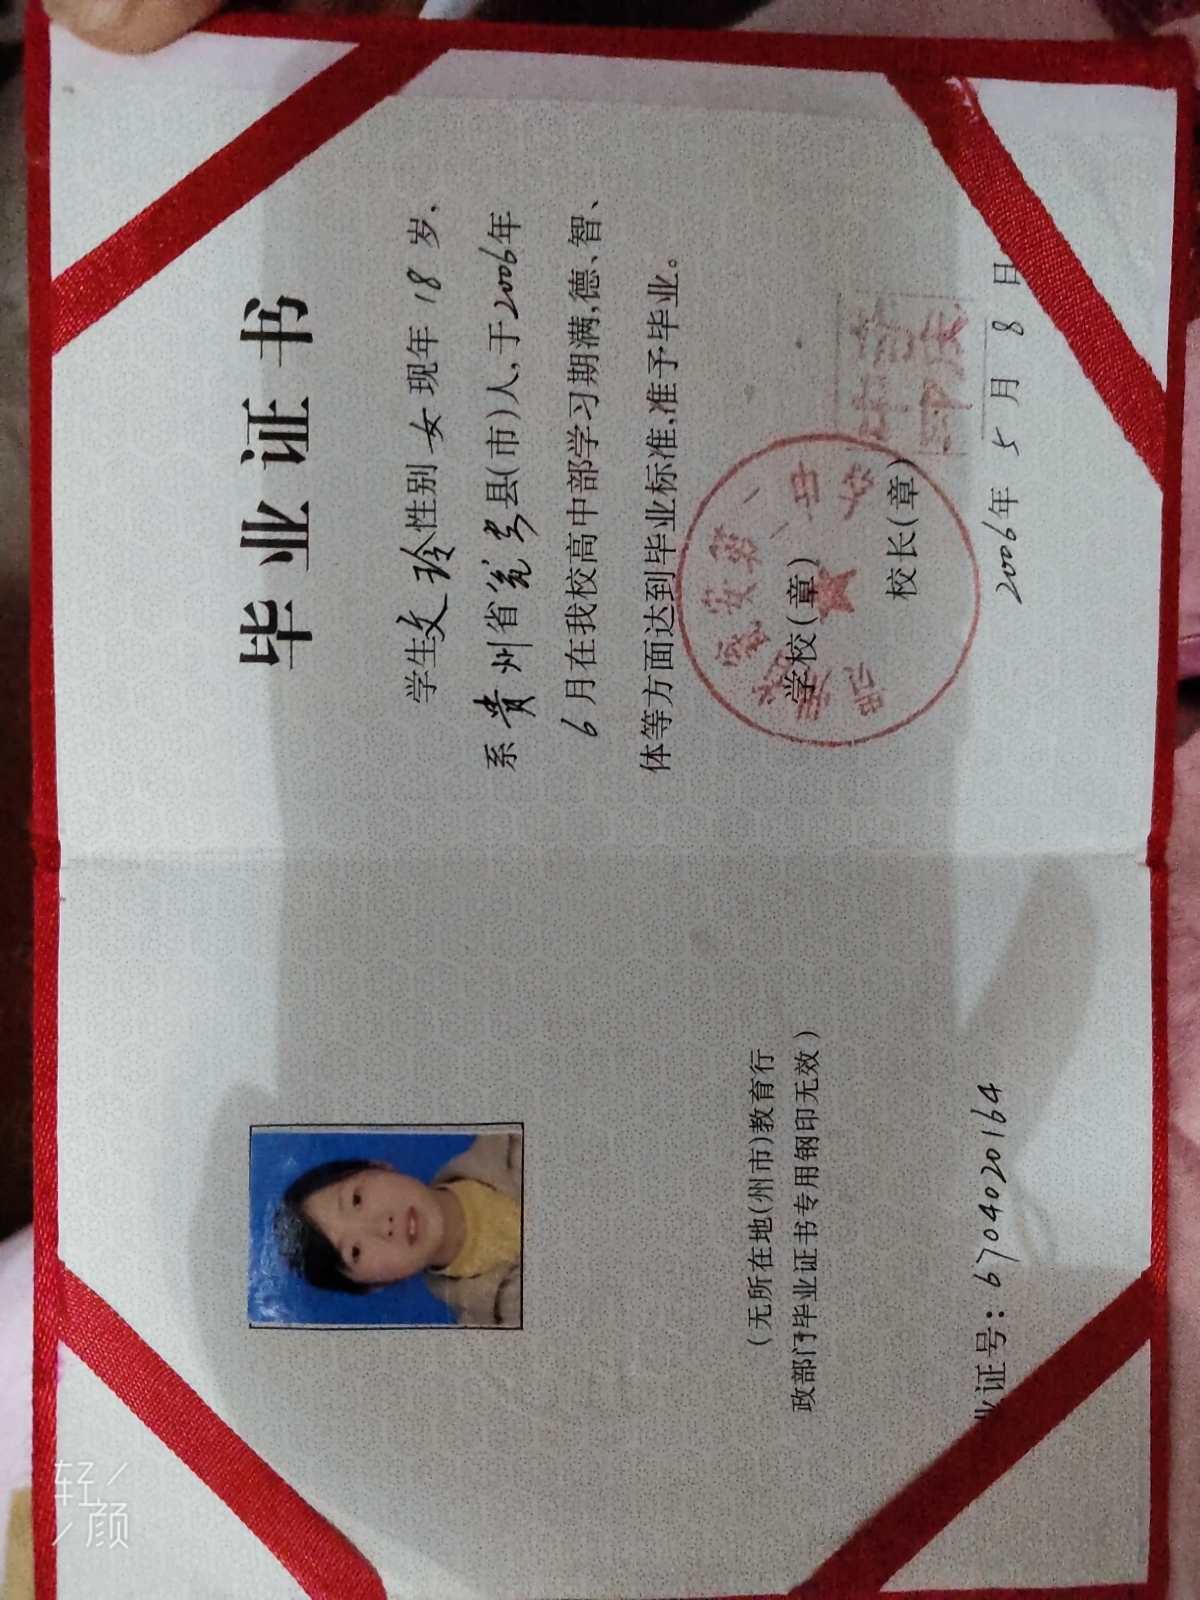 毕业证书
学生文玲性别女现年18岁,
系贵州省瓮安县(市)人,于2006年
6月在我校高中部学习期满,德、智、
体等方面达到毕业标准,准予毕业。
学校(章)
校长(章)
2006年5月8日
(无所在地(州市)教育行
政部门毕业证书专用钢印无效)
业证号:6704020164
轻颜